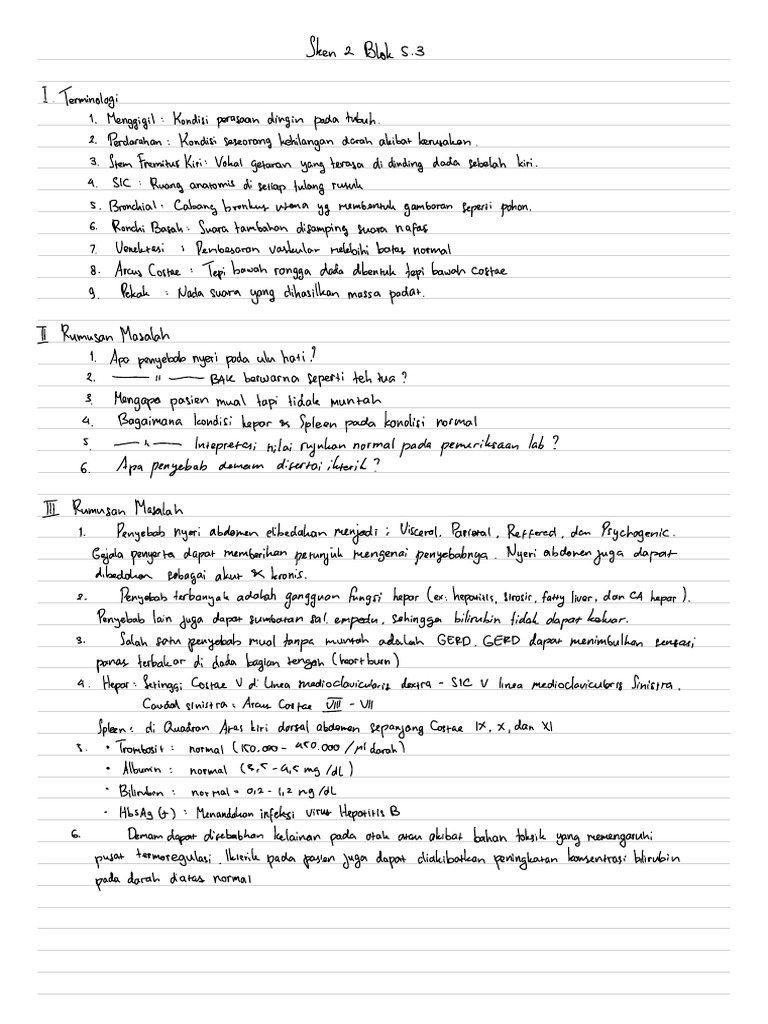 Sken 2 Blok 5.3
I. Terminologi
1. Menggigil : Kondisi perasaan dingin pada tubuh.
2. Perdarahan : Kondisi seseorang kehilangan darah akibat kerusakan.
3. Stem Fremitus Kiri : Vokal getaran yang terasa di dinding dada sebelah kiri.
4. SIC : Ruang anatomis di setiap tulang rusuk
5. Bronchial : Cabang bronkus utama yg membentuk gambaran seperti pohon.
6. Ronchi Basah : Suara tambahan disamping suara nafas
7. Venektasi : Pembesaran vaskular melebihi batas normal
8. Arcus Costae : Tepi bawah rongga dada dibentuk tepi bawah costae
9. Pekak : Nada suara yang dihasilkan massa padat.
II Rumusan Masalah
1. Apa penyebab nyeri pada ulu hati ?
2. —— " —— BAK berwarna seperti teh tua ?
3. Mengapa pasien mual tapi tidak muntah
4. Bagaimana kondisi hepar & Spleen pada kondisi normal
5. —— " —— Intepretasi nilai rujukan normal pada pemeriksaan lab ?
6. Apa penyebab demam disertai ikterik ?
III Rumusan Masalah
1. Penyebab nyeri abdomen dibedakan menjadi : Visceral, Parietal, Reffered, dan Psychogenic.
Gejala penyerta dapat memberikan petunjuk mengenai penyebabnya. Nyeri abdomen juga dapat
dibedakan sebagai akut & kronis.
2. Penyebab terbanyak adalah gangguan fungsi hepar (ex: hepatitis, sirosis, fatty liver, dan CA hepar).
Penyebab lain juga dapat sumbatan sal. empedu, sehingga bilirubin tidak dapat keluar.
3. Salah satu penyebab mual tanpa muntah adalah GERD. GERD dapat menimbulkan sensasi
panas terbakar di dada bagian tengah (heartburn)
4. Hepar : Setinggi Costae V di Linea medioclavicularis dextra - SIC V linea medioclavicularis Sinistra.
Caudal sinistra : Arcus Costae VIII - VII
Spleen : di Quadran Atas kiri dorsal abdomen sepanjang Costae IX, X, dan XI
5. • Trombosit : normal (150.000 - 450.000 /µl darah)
• Albumin : normal (3,5 - 4,5 mg/dL)
• Bilirubin : normal = 0,2 - 1,2 mg/dL
• HbsAg (+) : Menandakan infeksi virus Hepatitis B
6. Demam dapat disebabkan kelainan pada otak atau akibat bahan toksik yang memengaruhi
pusat termoregulasi. Ikterik pada pasien juga dapat diakibatkan peningkatan konsentrasi bilirubin
pada darah diatas normal